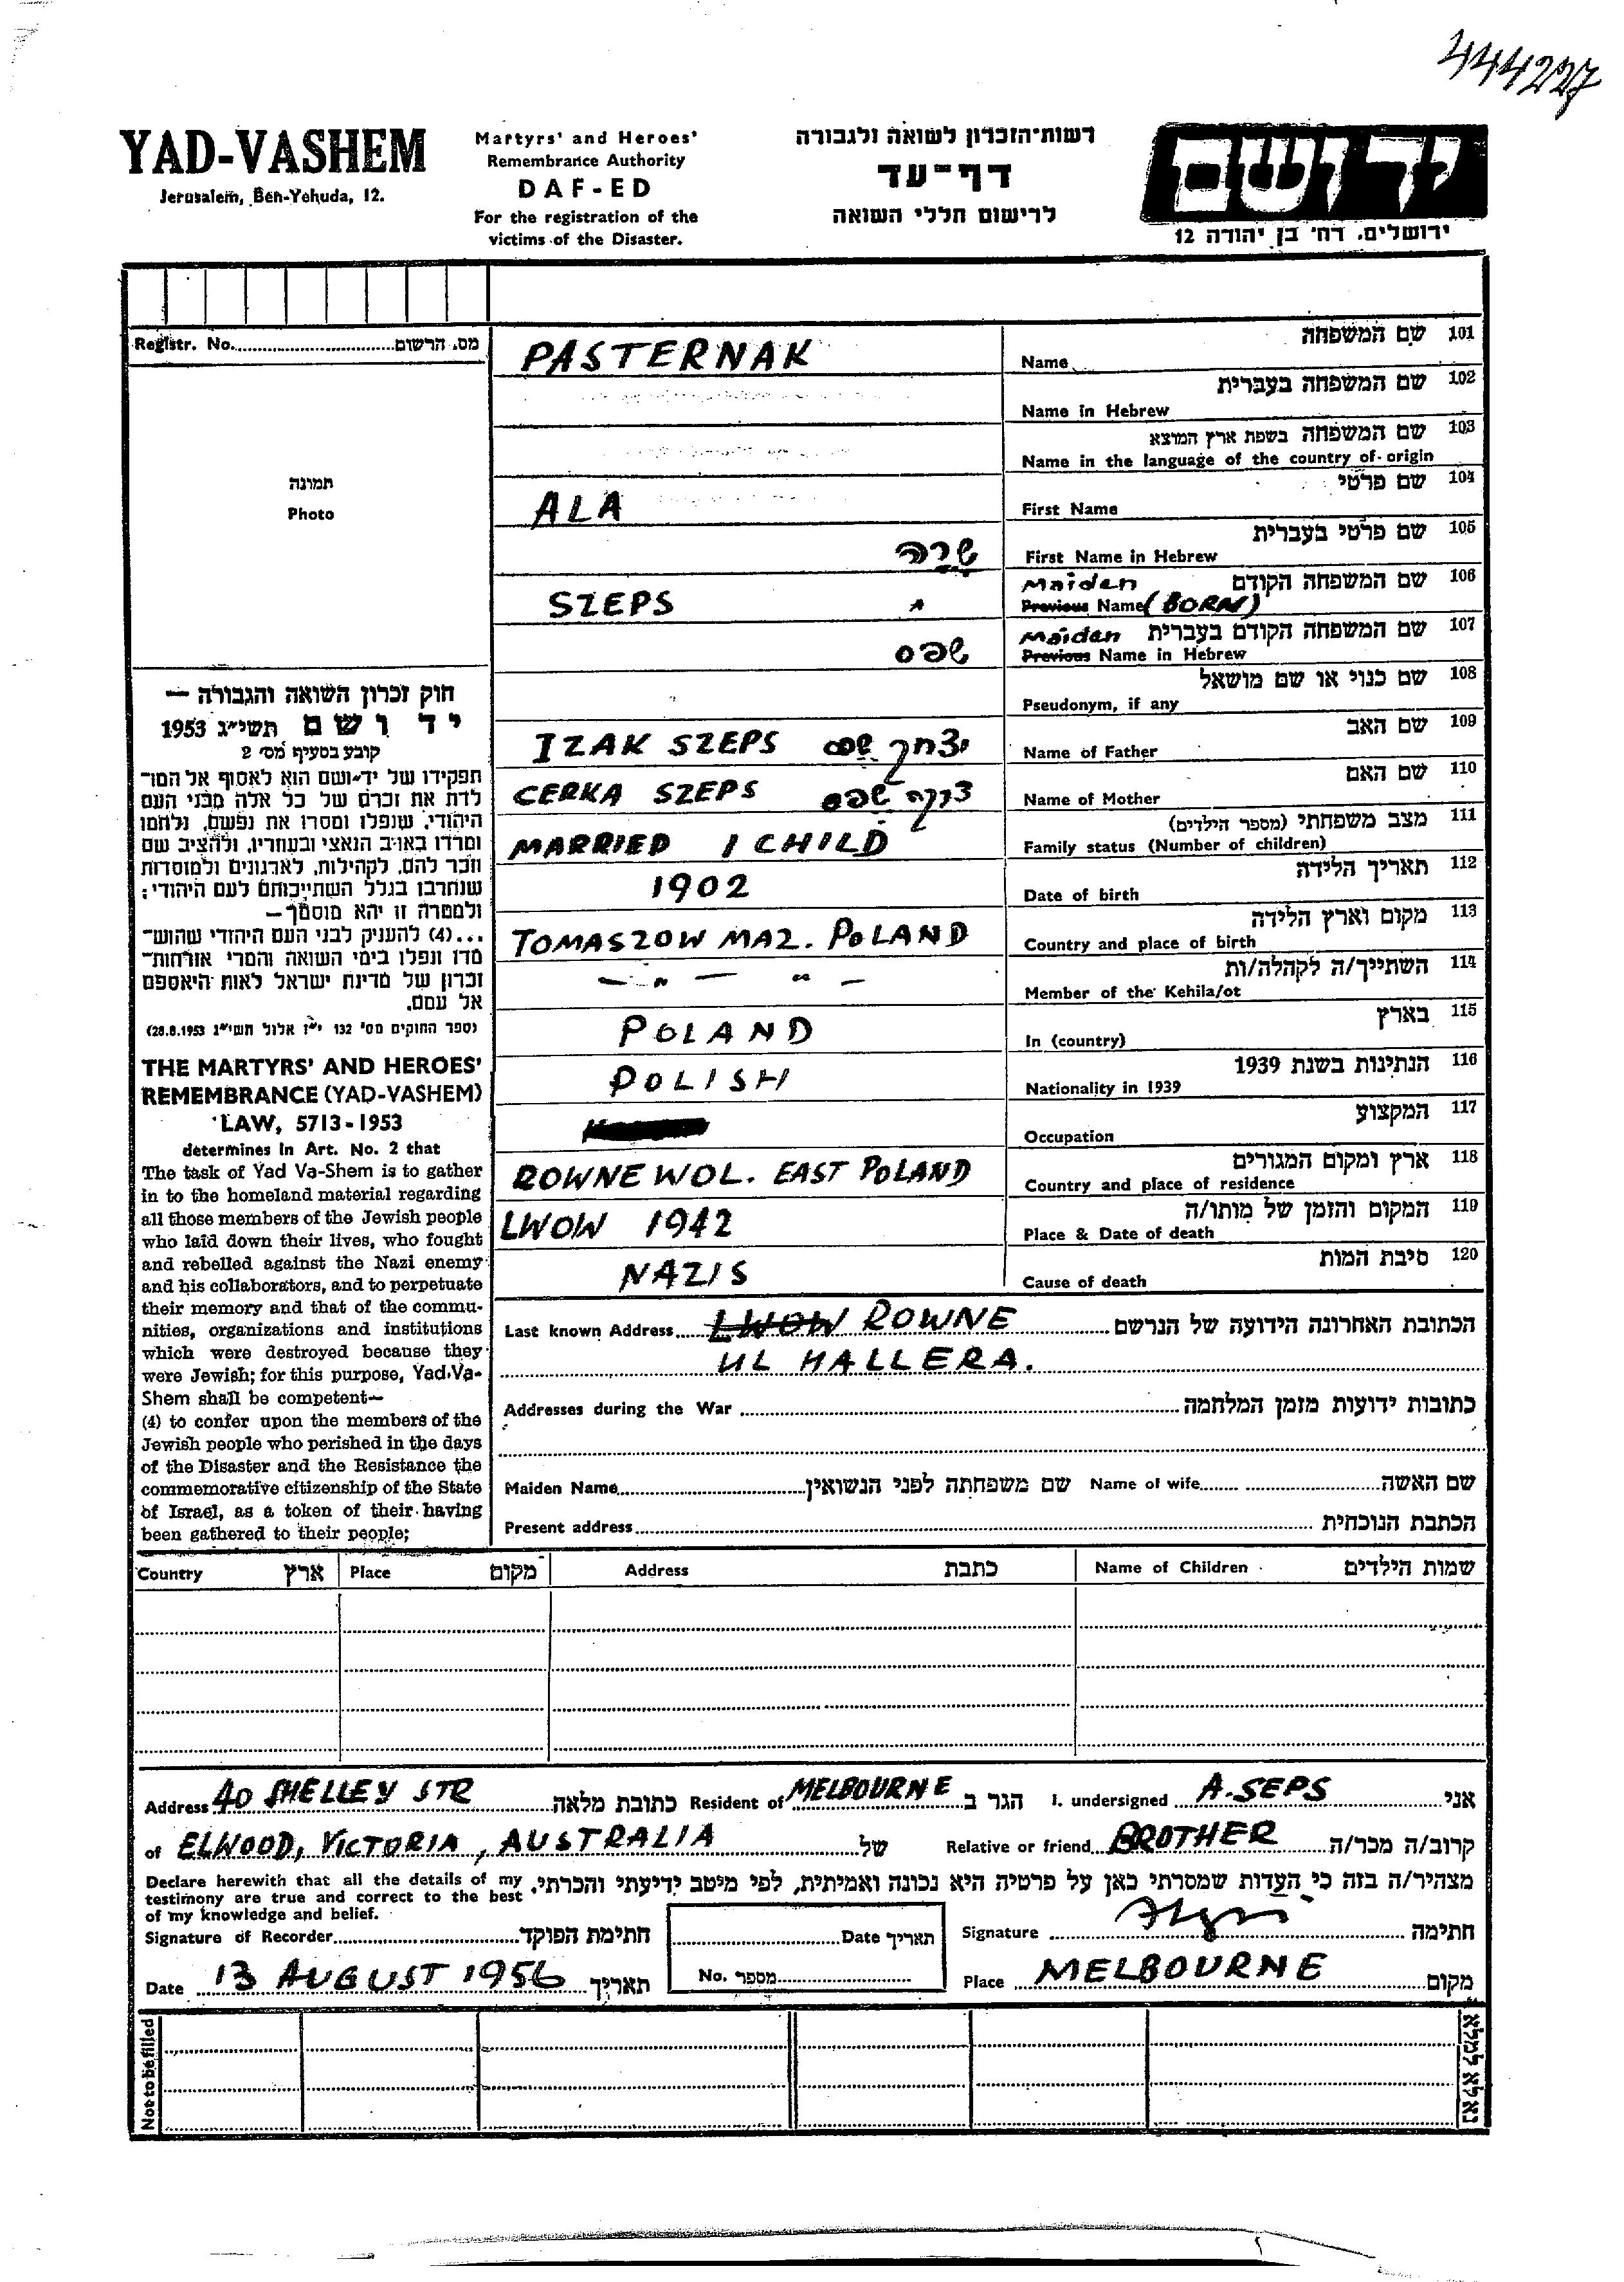 444227
YAD-VASHEM
Jerusalem, Ben-Yehuda, 12.
Martyrs' and Heroes'
Remembrance Authority
DAF-ED
For the registration of the
victims of the Disaster.
רשות-הזכרון לשואה ולגבורה
דף-עד
לרישום חללי השואה
יד ושם
ירושלים, רח' בן יהודה 12
Registr. No. מס. הרשום
תמונה
Photo
PASTERNAK Name שם המשפחה 101
Name in Hebrew שם המשפחה בעברית 102
Name in the language of the country of origin שם המשפחה בשפת ארץ המוצא 103
ALA First Name שם פרטי 104
שרה First Name in Hebrew שם פרטי בעברית 105
SZEPS Maiden Previous Name (BORN) שם המשפחה הקודם 106
שפס Maiden Previous Name in Hebrew שם המשפחה הקודם בעברית 107
Pseudonym, if any שם כנוי או שם מושאל 108
IZAK SZEPS יצחק שפס Name of Father שם האב 109
CERKA SZEPS שפס Name of Mother שם האם 110
MARRIED 1 CHILD Family status (Number of children) מצב משפחתי (מספר הילדים) 111
1902 Date of birth תאריך הלידה 112
TOMASZOW MAZ. POLAND Country and place of birth מקום וארץ הלידה 113
— " — " — Member of the Kehila/ot השתייך/ה לקהלה/ות 114
POLAND In (country) בארץ 115
POLISH Nationality in 1939 הנתינות בשנת 1939 116
Occupation המקצוע 117
ROWNE WOL. EAST POLAND Country and place of residence ארץ ומקום המגורים 118
LWOW 1942 Place & Date of death המקום והזמן של מותו/ה 119
NAZIS Cause of death סיבת המות 120
חוק זכרון השואה והגבורה —
יד ושם תשי"ג 1953
קובע בסעיף מס' 2
תפקידו של יד-ושם הוא לאסוף אל המו-
לדת את זכרם של כל אלה מבני העם
היהודי, שנפלו ומסרו את נפשם, נלחמו
ומרדו באויב הנאצי ובעוזריו, ולהציב שם
וזכר להם, לקהילות, לארגונים ולמוסדות
שנחרבו בגלל השתייכותם לעם היהודי;
ולמטרה זו יהא מוסמך —
...(4) להעניק לבני העם היהודי שהוש-
מדו ונפלו בימי השואה והמרי אזרחות-
זכרון של מדינת ישראל לאות היאספם
אל עמם.
(ספר החוקים מס' 132 י"ז אלול תשי"ג 28.8.1953)
THE MARTYRS' AND HEROES'
REMEMBRANCE (YAD-VASHEM)
LAW, 5713-1953
determines in Art. No. 2 that
The task of Yad Va-Shem is to gather
in to the homeland material regarding
all those members of the Jewish people
who laid down their lives, who fought
and rebelled against the Nazi enemy
and his collaborators, and to perpetuate
their memory and that of the commu-
nities, organizations and institutions
which were destroyed because they
were Jewish; for this purpose, Yad-Va-
Shem shall be competent—
(4) to confer upon the members of the
Jewish people who perished in the days
of the Disaster and the Resistance the
commemorative citizenship of the State
of Israel, as a token of their having
been gathered to their people;
Last known Address LWOW ROWNE הכתובת האחרונה הידועה של הנרשם
UL HALLERA.
Addresses during the War כתובות ידועות מזמן המלחמה
Maiden Name שם משפחתה לפני הנשואין Name of wife שם האשה
Present address הכתבת הנוכחית
Country ארץ Place מקום Address כתבת Name of Children שמות הילדים
Address 40 SHELLEY STR כתובת מלאה Resident of MELBOURNE הגר ב I. undersigned A. SEPS אני
of ELWOOD, VICTORIA, AUSTRALIA של Relative or friend BROTHER קרוב/ה מכר/ה
Declare herewith that all the details of my מצהיר/ה בזה כי העדות שמסרתי כאן על פרטיה היא נכונה ואמיתית, לפי מיטב ידיעתי והכרתי.
testimony are true and correct to the best
of my knowledge and belief.
Signature of Recorder חתימת הפוקד Date תאריך Signature חתימה
Date 13 AUGUST 1956 תאריך No. מספר Place MELBOURNE מקום
Not to be filled נא לא למלא